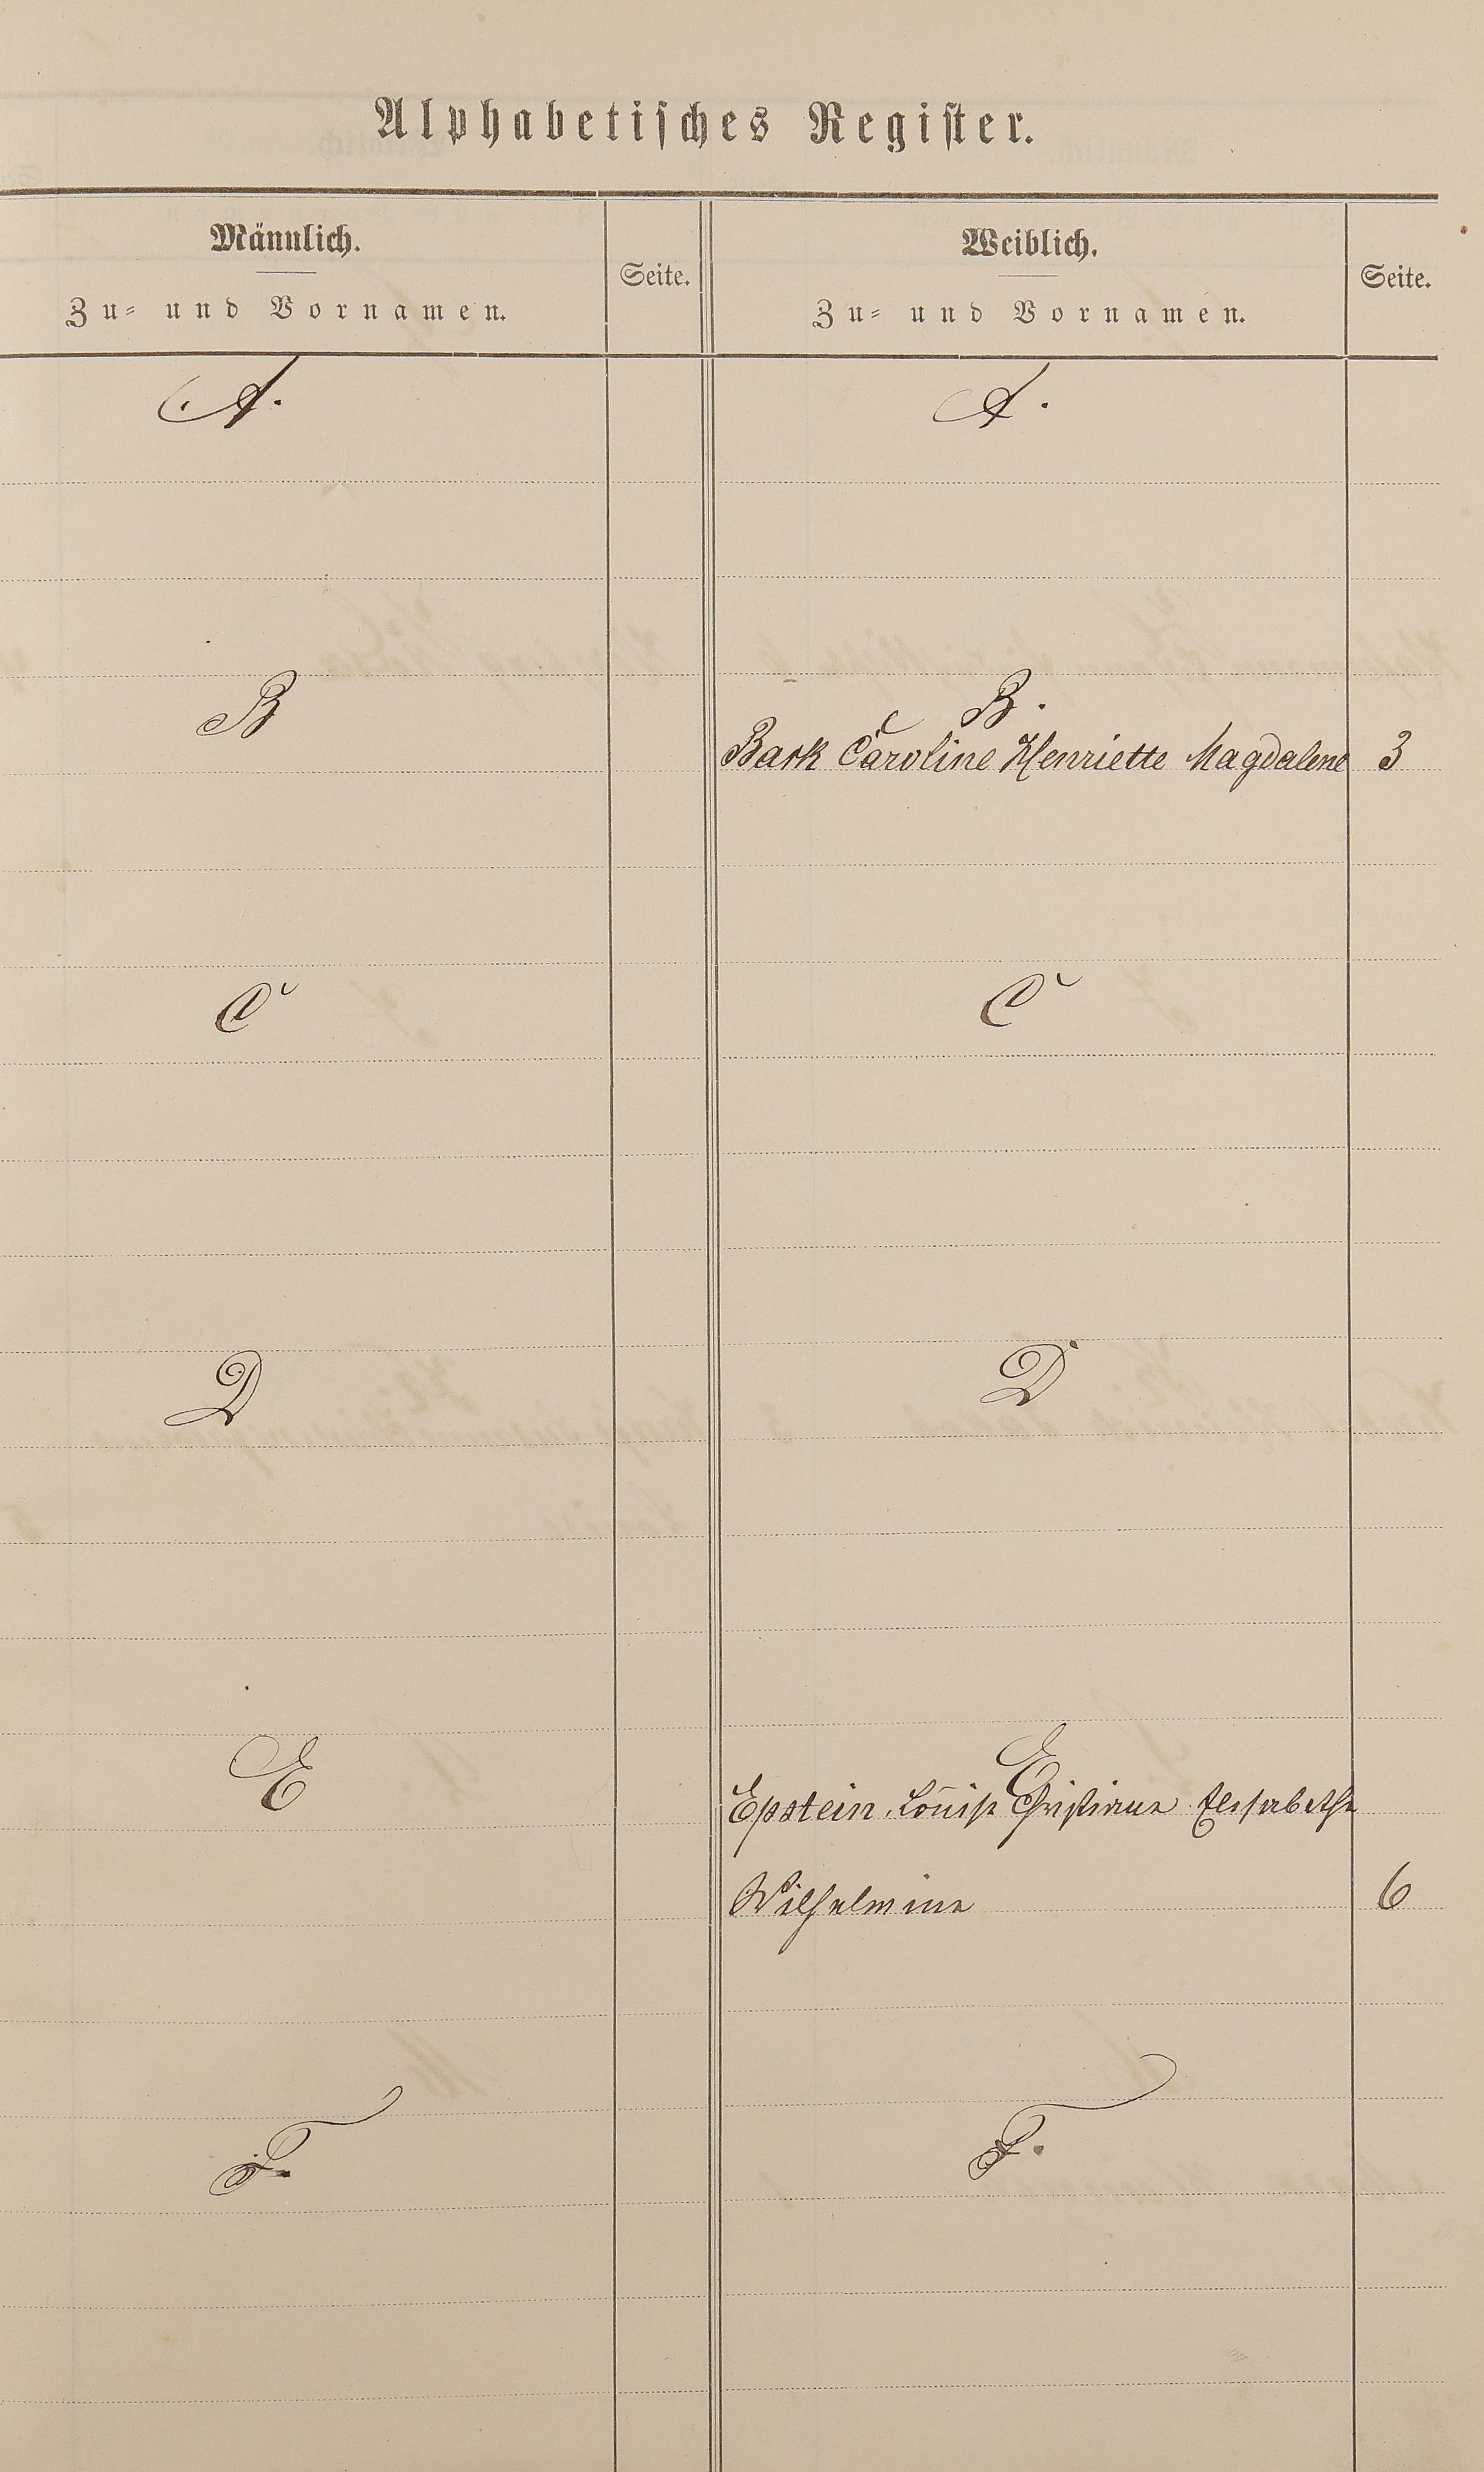 Alphabetisches Register.
Männlich.
Zu- und Vornamen.
Seite.
Weiblich.
Zu- und Vornamen.
Seite.
A.
A.
B
B.
Bark Caroline Henriette Magdalene 3
C
C
D
D
E
E
Epstein, Louise Christiane Elisabethe
Wilhelmine 6
F.
F.